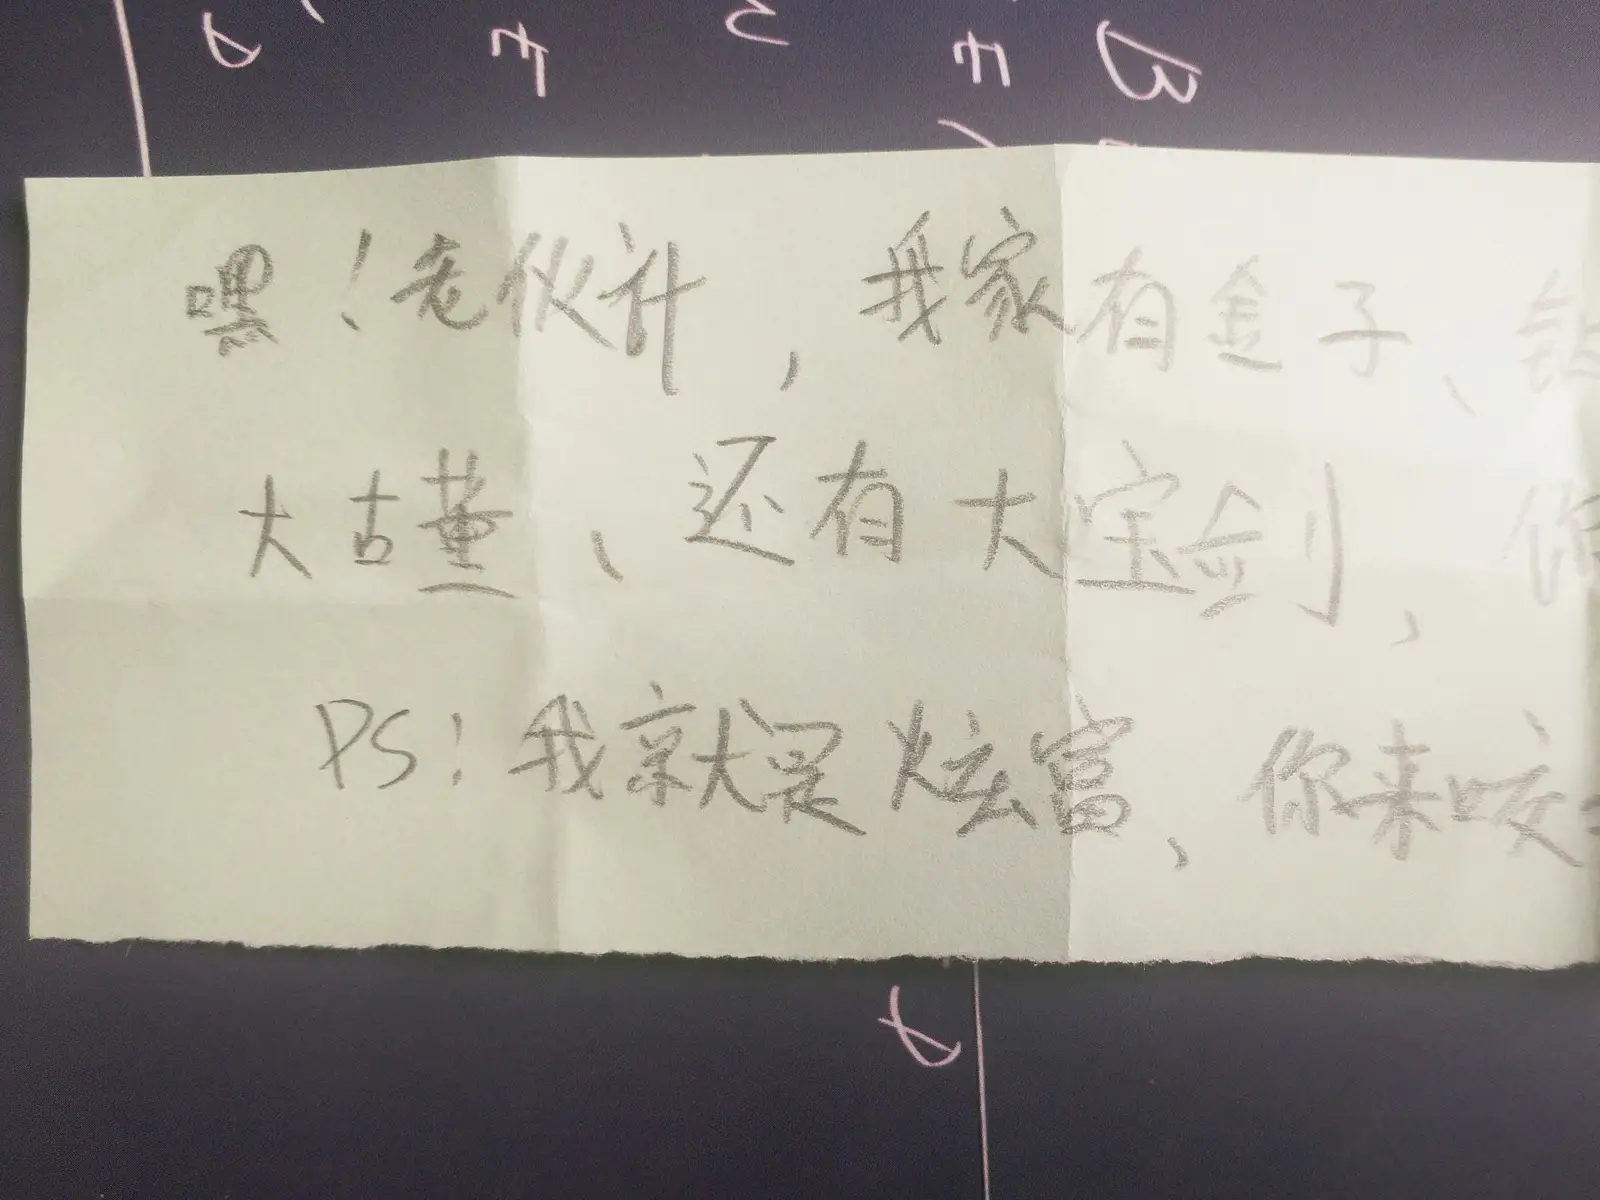 嘿！老伙计，我家有金子、钻
大古董、还有大宝剑，你
PS：我就是炫富、你来咬